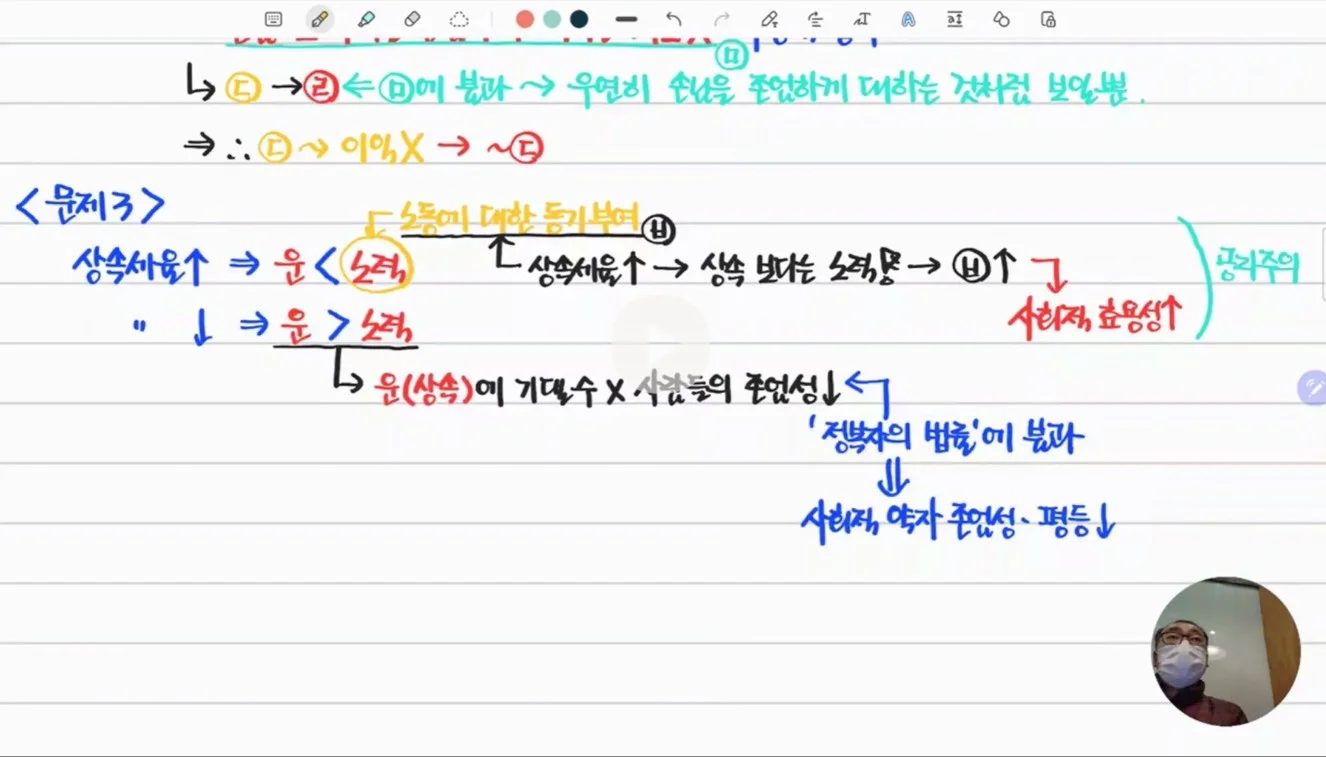 ㅁ
↳ ㄷ → ㄹ ← ㅁ에 불과 ⤳ 우연히 손님을 존엄하게 대하는 것처럼 보일뿐.
⇒ ∴ ㄷ ⤳ 이익X → ~ㄷ
<문제3>
노동에 대한 동기부여 ㅂ
상속세율↑ ⇒ 운 < 노력
상속세율↑ → 상속 보다는 노력 → ㅂ↑
공리주의
사회적 효용성↑
" ↓ ⇒ 운 > 노력
↳ 운(상속)에 기댈수 X 사람들의 존엄성↓ ←
'정복자의 법률'에 불과
⇓
사회적 약자 존엄성·평등↓